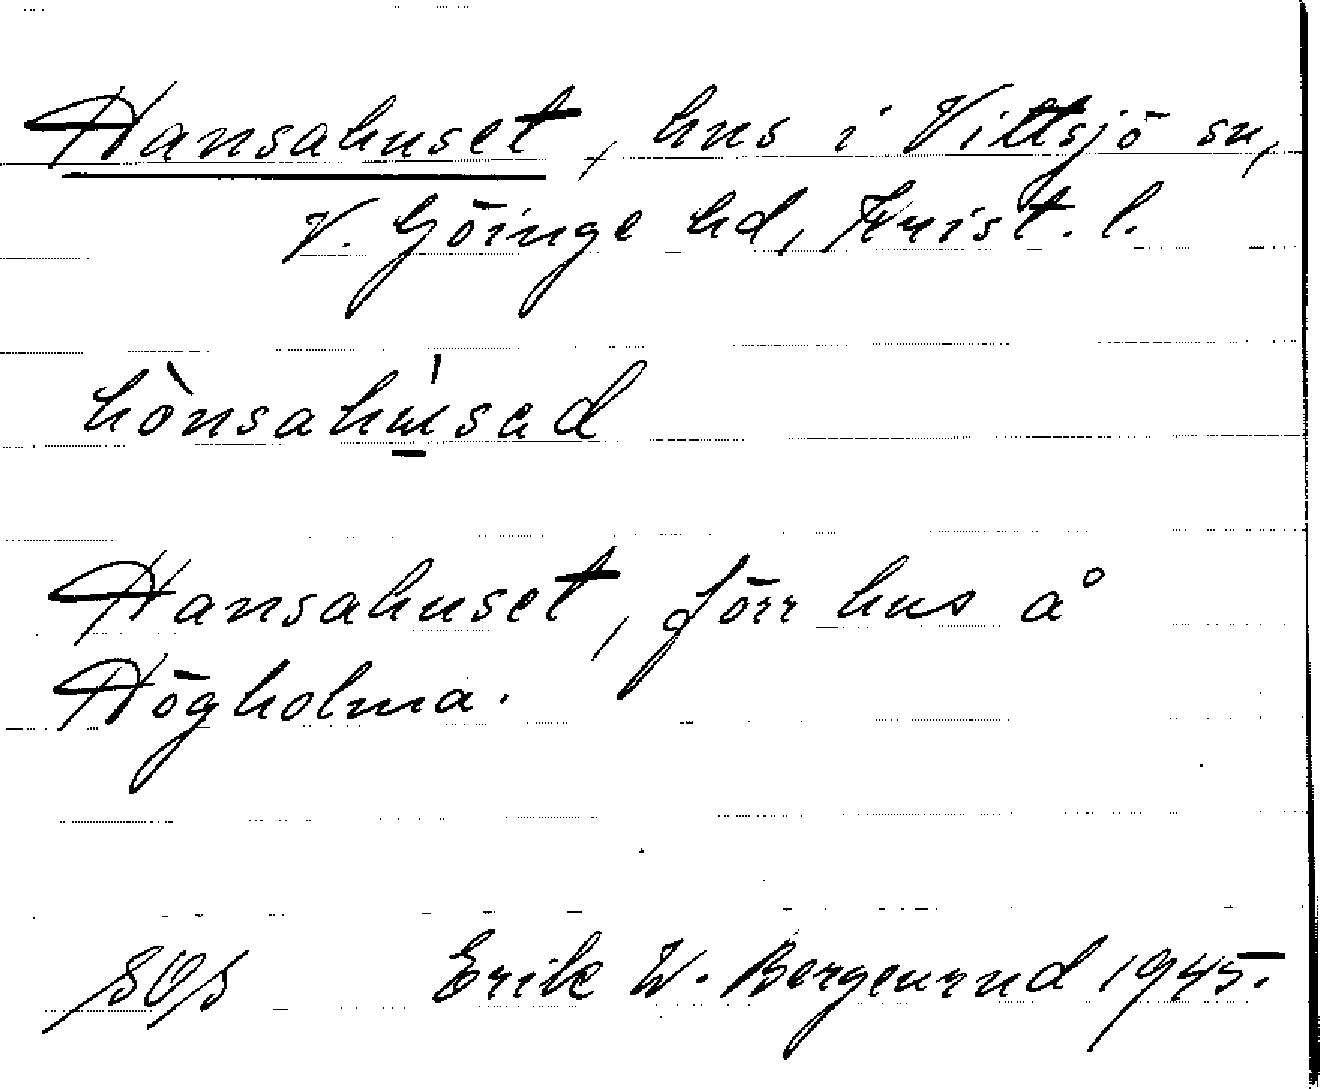 Hansahuset, hus i Vittsjö sn,
V. Göinge hd, Krist. l.
hònsahu̲ˈsad
Hansahuset, förr hus å
Högholma.
SOS Erik W. Bergenrud 1945.